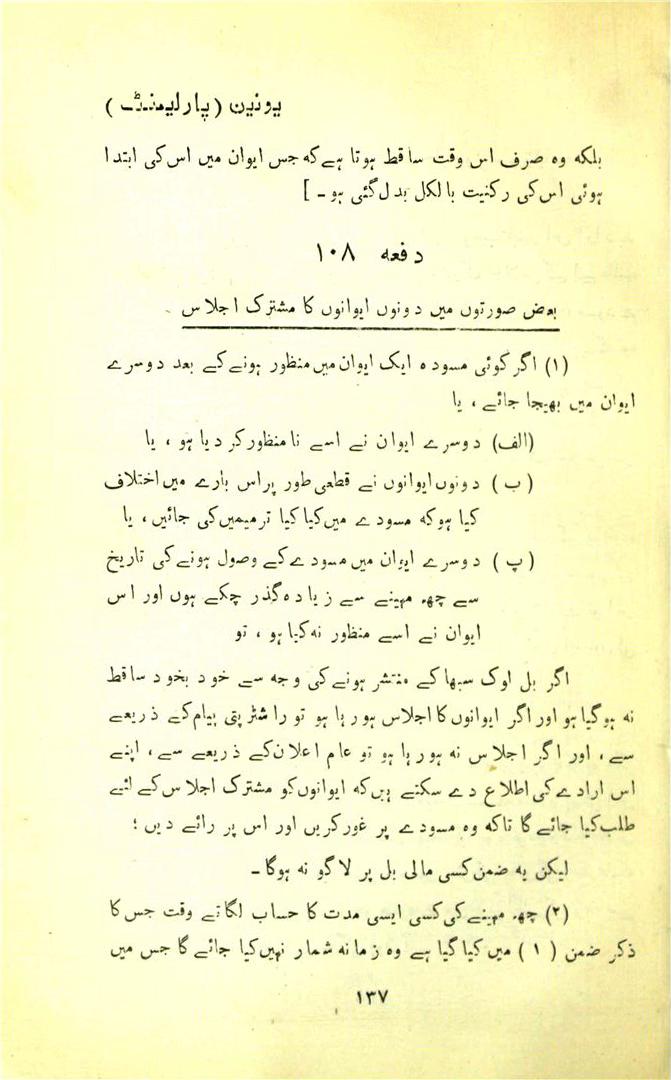 یونین (پارلیمنٹ)
بلکہ وہ صرف اس وقت ساقط ہوتا ہے کہ جس ایوان میں اس کی ابتدا
ہوئی اس کی رکنیت بالکل بدل گئی ہو ۔ ]
دفعہ ۱۰۸
بعض صورتوں میں دونوں ایوانوں کا مشترک اجلاس ۔
(۱) اگر کوئی مسودہ ایک ایوان میں منظور ہونے کے بعد دوسرے
ایوان میں بھیجا جائے ، یا
(الف) دوسرے ایوان نے اسے نا منظور کر دیا ہو ، یا
(ب) دونوں ایوانوں نے قطعی طور پر اس بارے میں اختلاف
کیا ہو کہ مسودے میں کیا کیا ترمیمیں کی جائیں ، یا
(پ) دوسرے ایوان میں مسودے کے وصول ہونے کی تاریخ
سے چھ مہینے سے زیادہ گذر چکے ہوں اور اس
ایوان نے اسے منظور نہ کیا ہو ، تو
اگر بل لوک سبھا کے منتشر ہونے کی وجہ سے خود بخود ساقط
نہ ہو گیا ہو اور اگر ایوانوں کا اجلاس ہو رہا ہو تو راشٹرپتی پیام کے ذریعے
سے ، اور اگر اجلاس نہ ہو رہا ہو تو عام اعلان کے ذریعے سے ، اپنے
اس ارادے کی اطلاع دے سکتے ہیں کہ ایوانوں کو مشترک اجلاس کے لئے
طلب کیا جائے گا تاکہ وہ مسودے پر غور کریں اور اس پر رائے دیں ؛
لیکن یہ ضمن کسی مالی بل پر لاگو نہ ہوگا ۔
(۲) چھ مہینے کی کسی ایسی مدت کا حساب لگاتے وقت جس کا
ذکر ضمن (۱) میں کیا گیا ہے وہ زمانہ شمار نہیں کیا جائے گا جس میں
۱۳۷